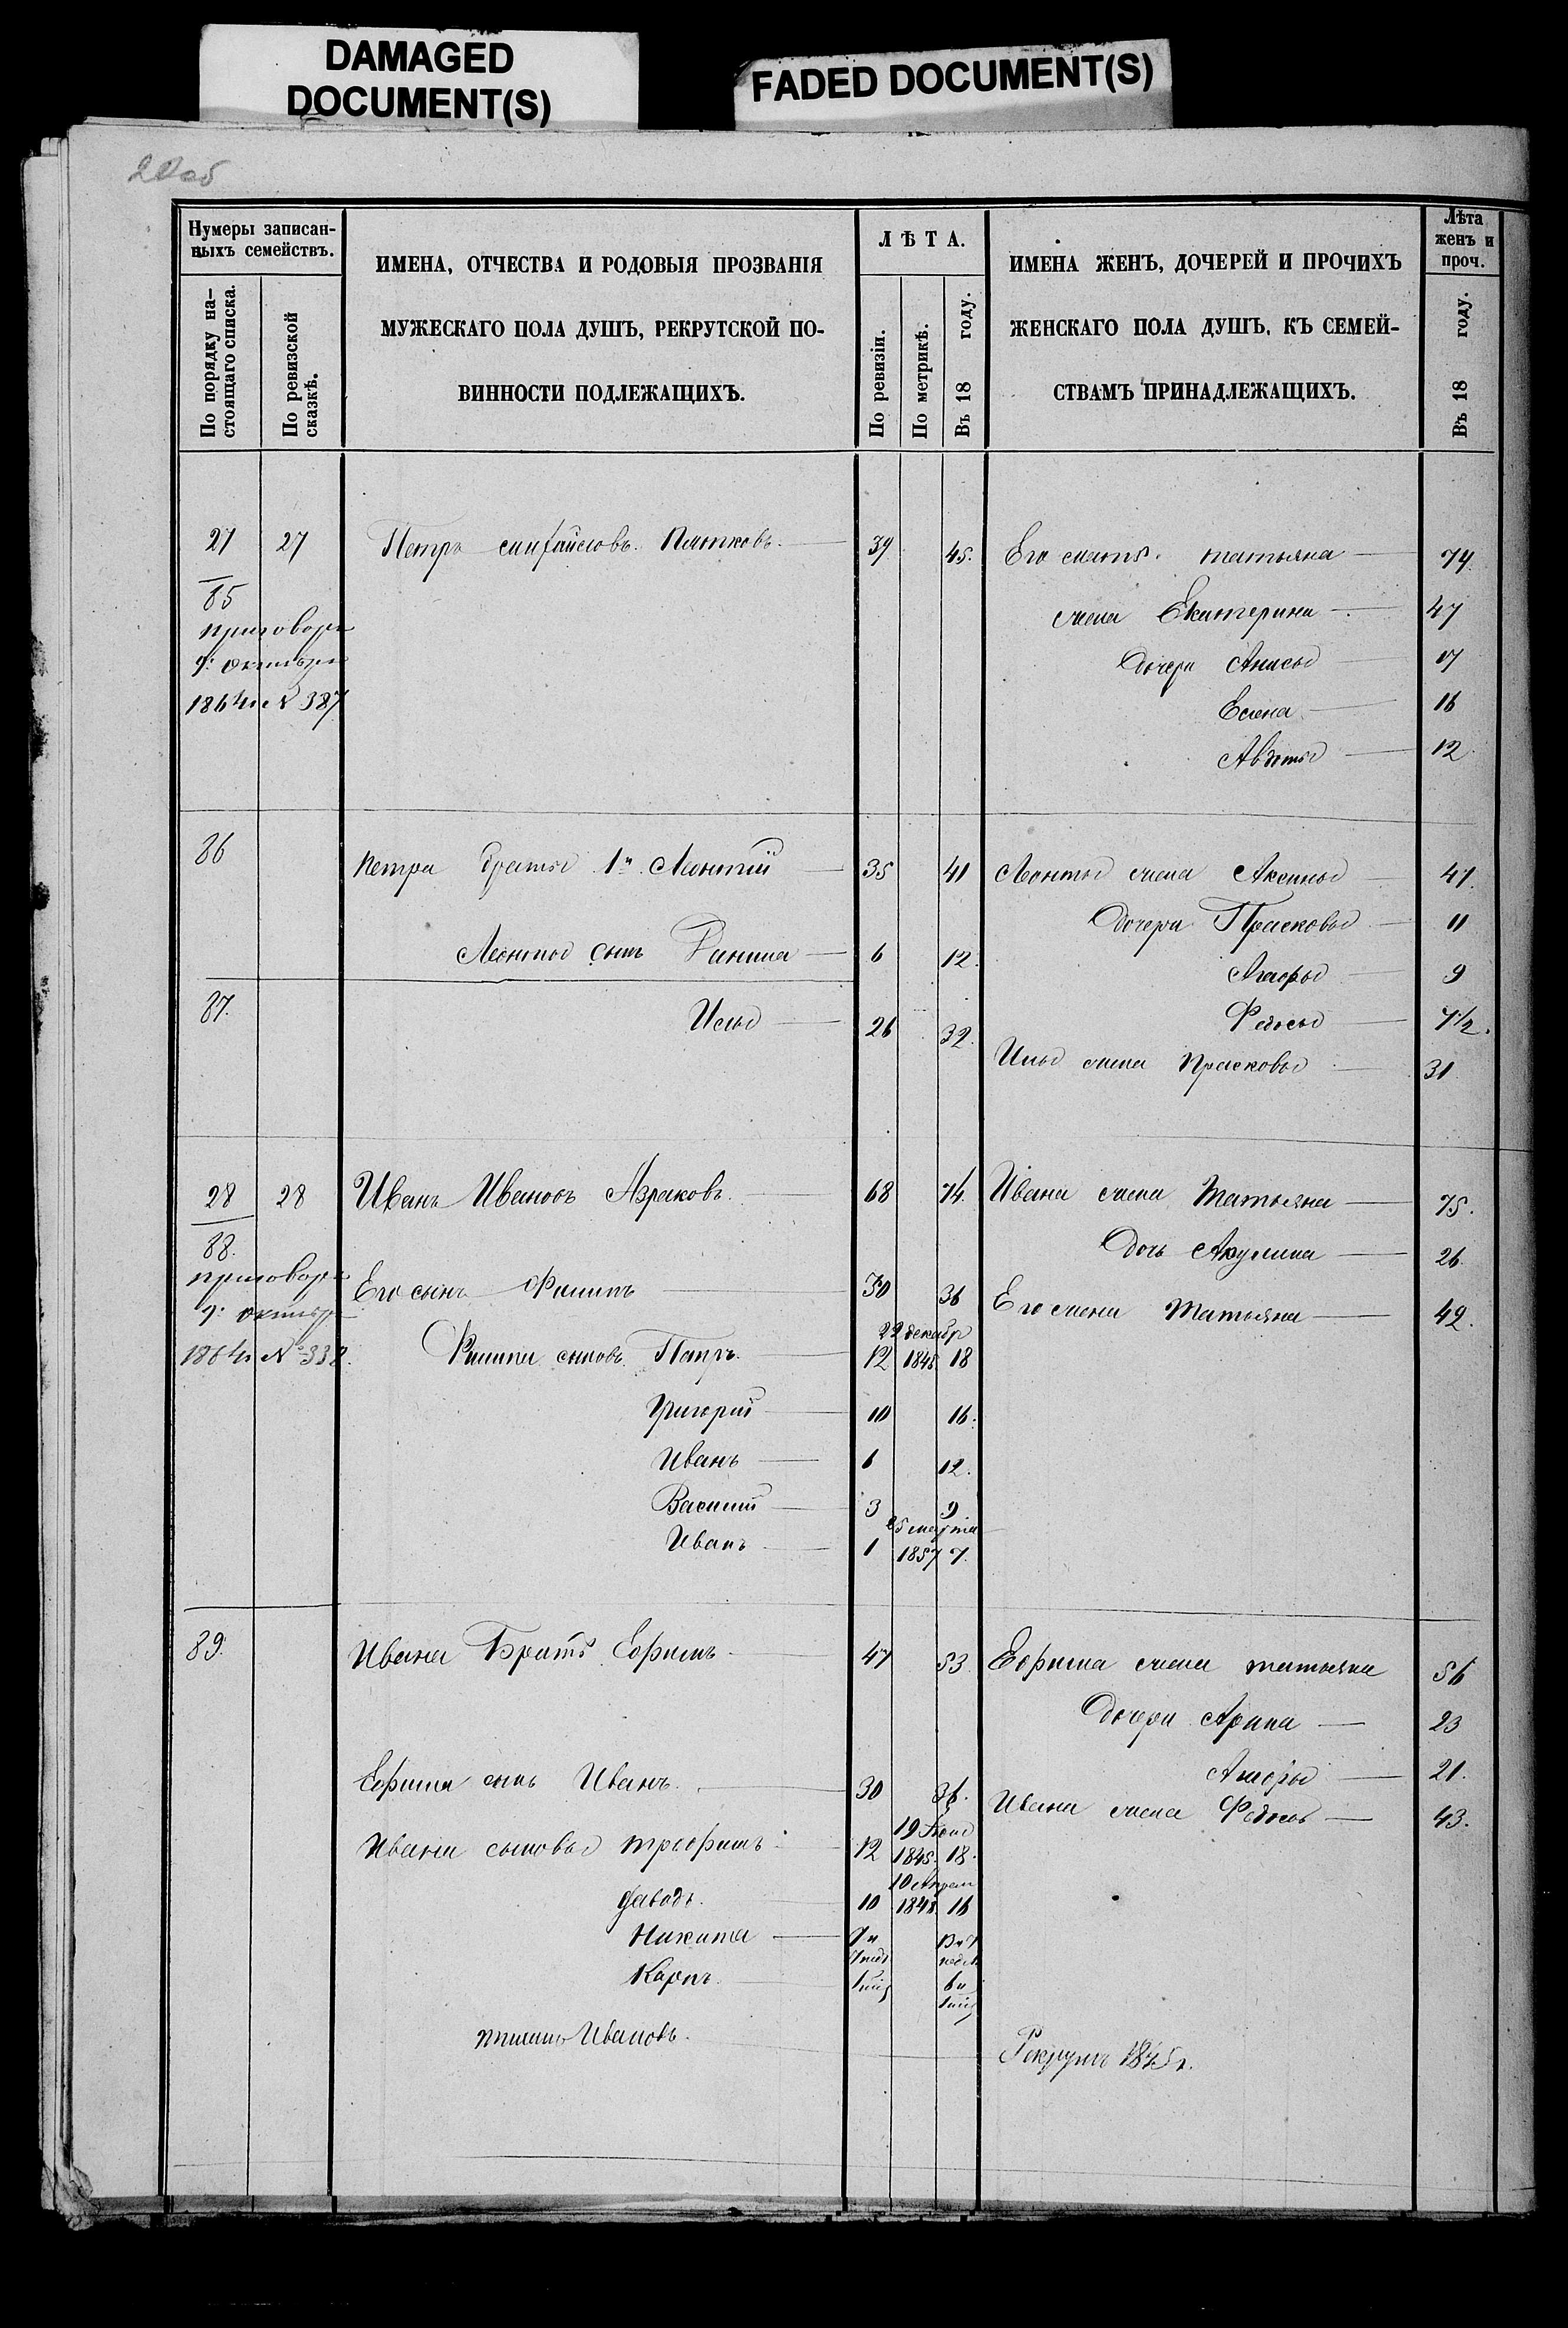 DAMAGED
DOCUMENT(S)
FADED DOCUMENT(S)
Нумеры записан-
ныхъ семействъ.
По порядку на-
стоящаго списка.
По ревизской
сказкѣ.
ИМЕНА, ОТЧЕСТВА И РОДОВЫЯ ПРОЗВАНІЯ
МУЖЕСКАГО ПОЛА ДУШЪ, РЕКРУТСКОЙ ПО-
ВИННОСТИ ПОДЛЕЖАЩИХЪ.
ЛѢТА.
По ревизіи.
По метрикѣ.
Въ 18 году.
ИМЕНА ЖЕНЪ, ДОЧЕРЕЙ И ПРОЧИХЪ
ЖЕНСКАГО ПОЛА ДУШЪ, КЪ СЕМЕЙ-
СТВАМЪ ПРИНАДЛЕЖАЩИХЪ.
Лѣта
женъ и
проч.
Въ 18 году.
27 27 Петръ 39 45. Его мать Татьяна 74
85 жена Екатерина 47
приговоръ
7: октября Дочери Анисья 17
1864 г № 387 Елена 16
Авдотья 12
86 Петра братья 1й Леонтій 35 41 Леонтья жена Аксинья 41
Дочери Прасковья 11
Леонтья сынъ 6 12. 9
87. Илья 26 32. Федосья 7 1/2.
Ильи жена Прасковья 31
28 28 Иванъ Ивановъ Азраковъ. 68 74. Ивана жена Татьяна 75.
88. Дочь Акулина 26
приговоръ Его сынъ Филипъ 30 36 Его жена Татьяна 42.
7: октября
1864 г № 338. 22 декабр
Филипа сыновья Петръ. 12 1845 18
Григорій 10 16.
Иванъ 6 12.
Василій 3 9
25 марта
Иванъ 1 1857 7.
89. Ивана Братъ Ефимъ 47 53 Ефима жена Татьяна 56
Дочери Арина 23
21.
Ефима сынъ Иванъ. 30 36. Ивана жена Федосья 43.
Ивана сыновья Трофимъ 12 1845. 18.
10 Апреля
Давыдъ. 10 1848 16
Никита
Карпъ.
Ивановъ. Рекрутъ 1845 г.